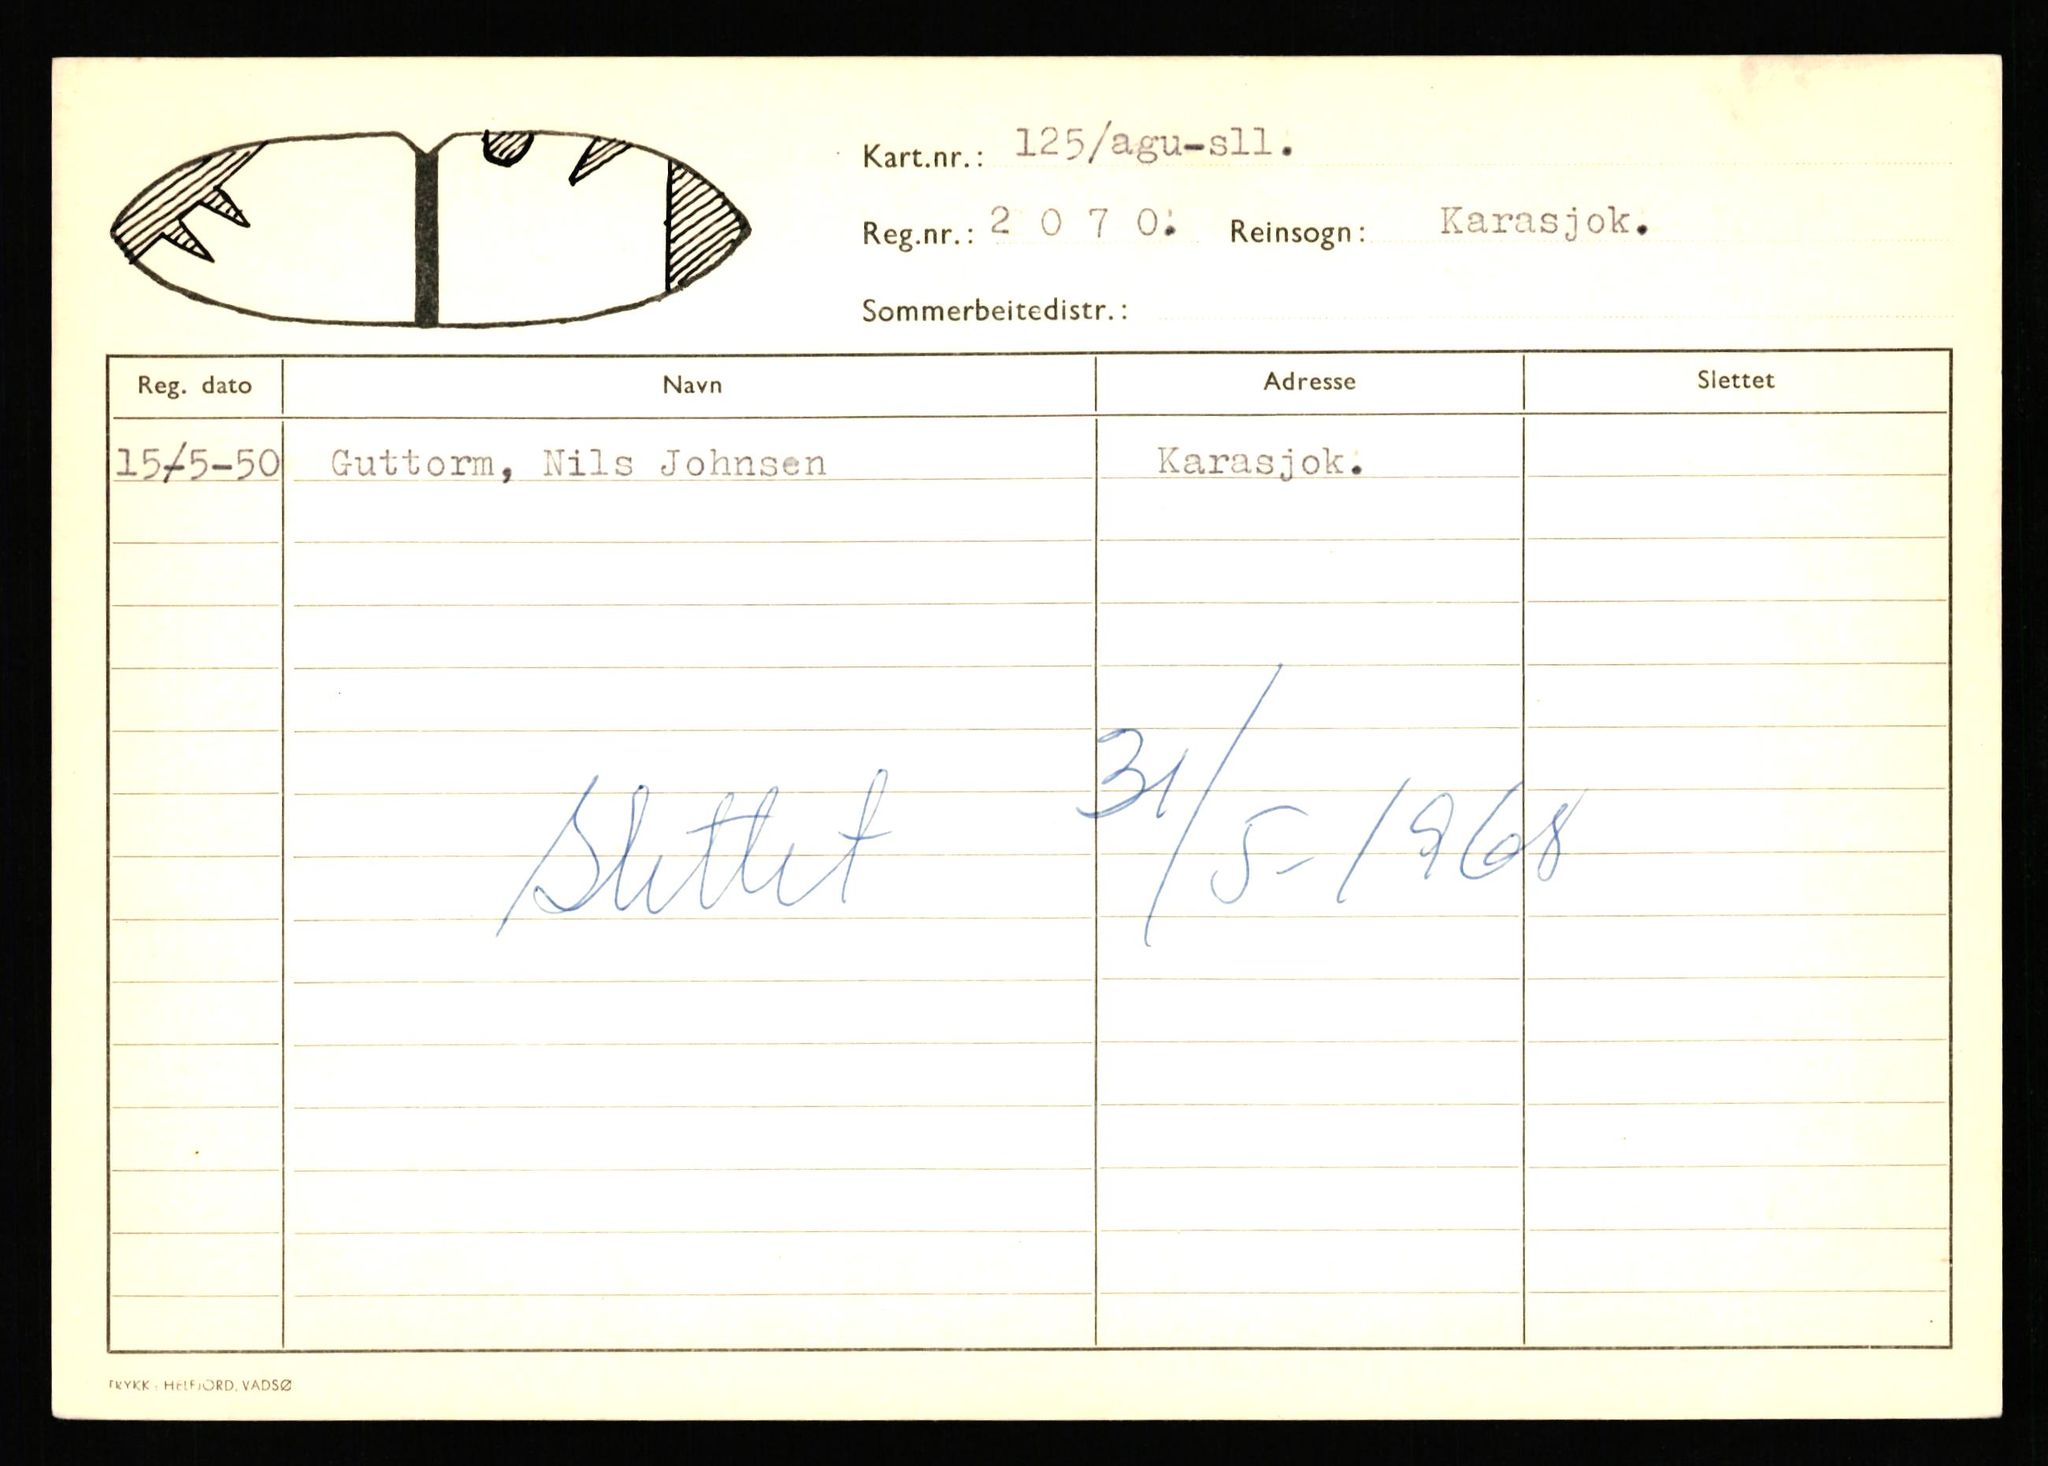 Kart.nr.: 125/agu-sll.
Reg.nr.: 2 0 7 0. Reinsogn: Karasjok.
Sommerbeitedistr.:
Reg. dato Navn Adresse Slettet
15/5-50 Guttorm, Nils Johnsen Karasjok.
Slettet 31/5-1968
TRYKK: HELFJORD, VADSØ